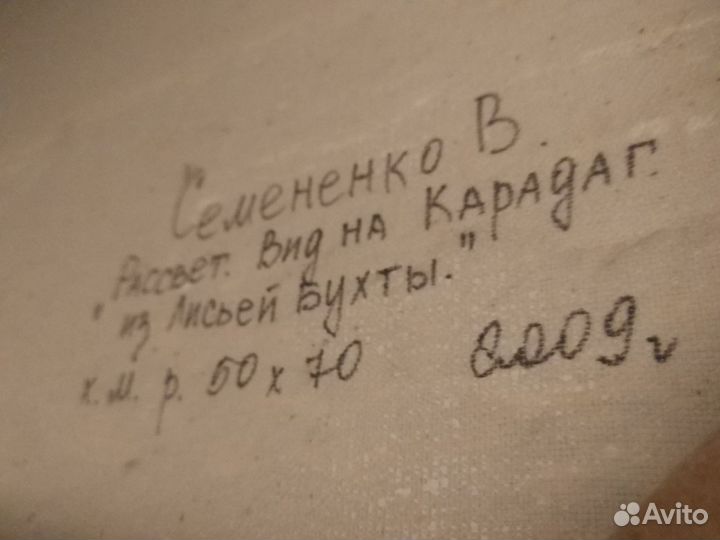 Семененко В.
"Рассвет. Вид на Карадаг.
из Лисьей Бухты."
х. м. р. 50 х 70 2009г
Avito